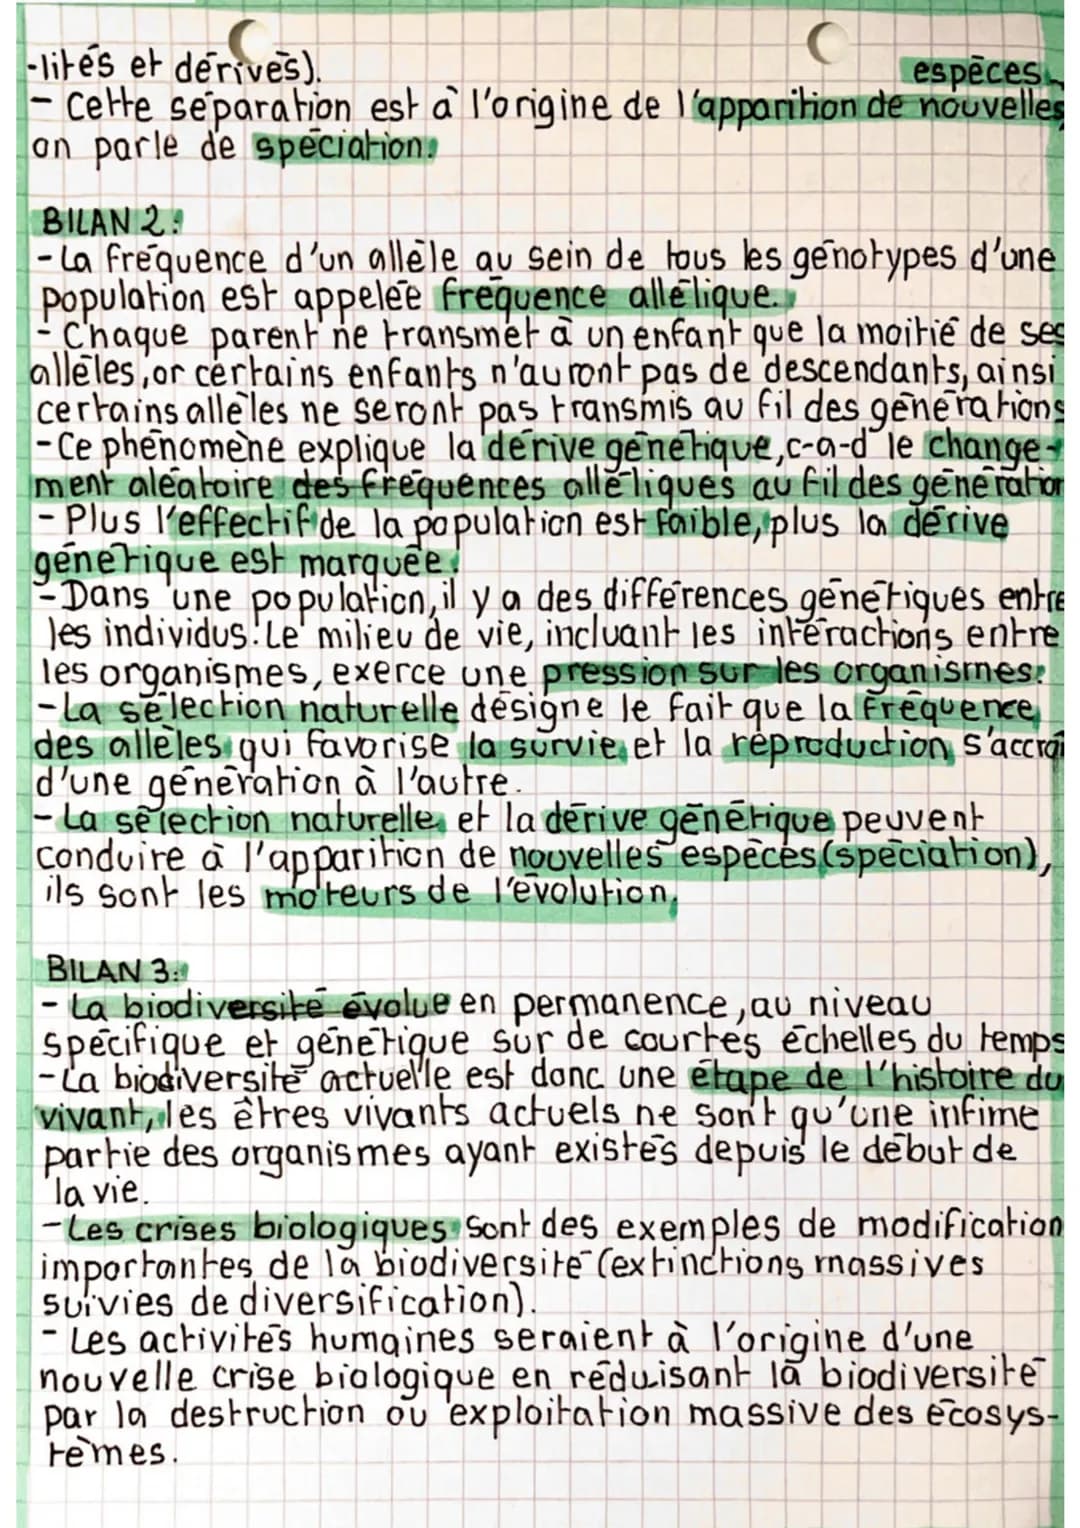 -lités et dérivés).
espèces
- Cette séparation est à l'origine de l'apparition de nouvelles
on parle de spéciation.
BILAN 2:
- La fréquence d'un allèle au sein de tous les génotypes d'une
population est appelée fréquence allélique.
- Chaque parent ne transmet à un enfant que la moitié de ses
allèles, or certains enfants n'auront pas de descendants, ainsi
certains allèles ne seront pas transmis au fil des générations
- Ce phénomène explique la dérive génétique, c-a-d le change-
ment aléatoire des fréquences alléliques au fil des génération
- Plus l'effectif de la population est faible, plus la dérive
génétique est marquée.
- Dans une population, il y a des différences génétiques entre
les individus. Le milieu de vie, incluant les intéractions entre
les organismes, exerce une pression sur les organismes.
- La sélection naturelle désigne le fait que la fréquence
des allèles qui favorise la survie et la réproduction s'accroî
d'une génération à l'autre.
- La sélection naturelle et la dérive génétique peuvent
conduire à l'apparition de nouvelles espèces (spéciation),
ils sont les moteurs de l'évolution.
BILAN 3:
- La biodiversité évolue en permanence, au niveau
spécifique et génétique sur de courtes échelles du temps
- La biodiversité actuelle est donc une étape de l'histoire du
vivant, les êtres vivants actuels ne sont qu'une infime
partie des organismes ayant existés depuis le début de
la vie.
- Les crises biologiques sont des exemples de modification
importantes de la biodiversité (extinctions massives
suivies de diversification).
- Les activités humaines seraient à l'origine d'une
nouvelle crise biologique en réduisant la biodiversité
par la destruction ou exploitation massive des écosys-
tèmes.